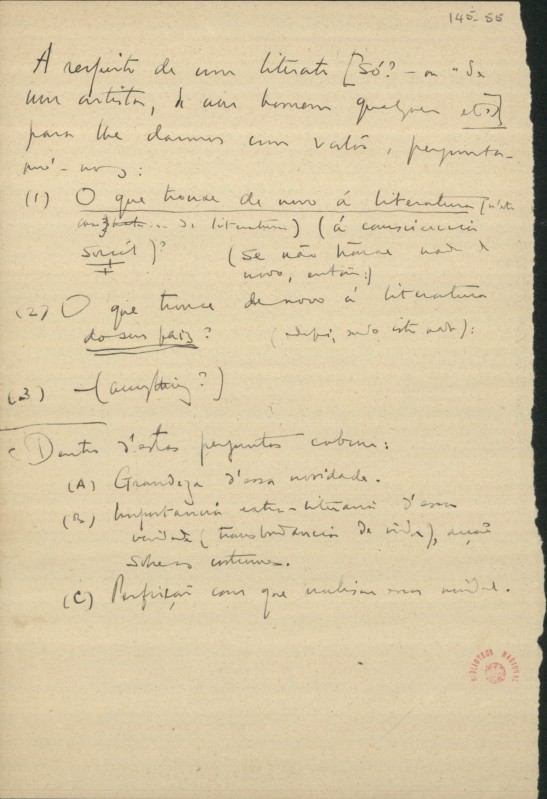 145-55
A respeito de um literato [Só? – ou "de
um artista, de um homem qualquer etc]
para lhe darmos um valor, pergunta-
mo'-nos:
(1) O que trouxe de novo á literatura
de literatura) (á consciencia
social)? (Se não trouxe nada de
novo, então:)
(2) O que trouxe de novo á literatura
do seu paiz? (depois, sendo isto nada):
(3) – (anything?)
Dentro d'estas perguntas cabem:
(A) Grandeza d'essa novidade.
(B) Importancia extra-literaria d'essa
novidade (transbordancia da vida), acção
sobre os costumes.
(C) Perfeição com que realisou essa novidade.
BIBLIOTECA NACIONAL